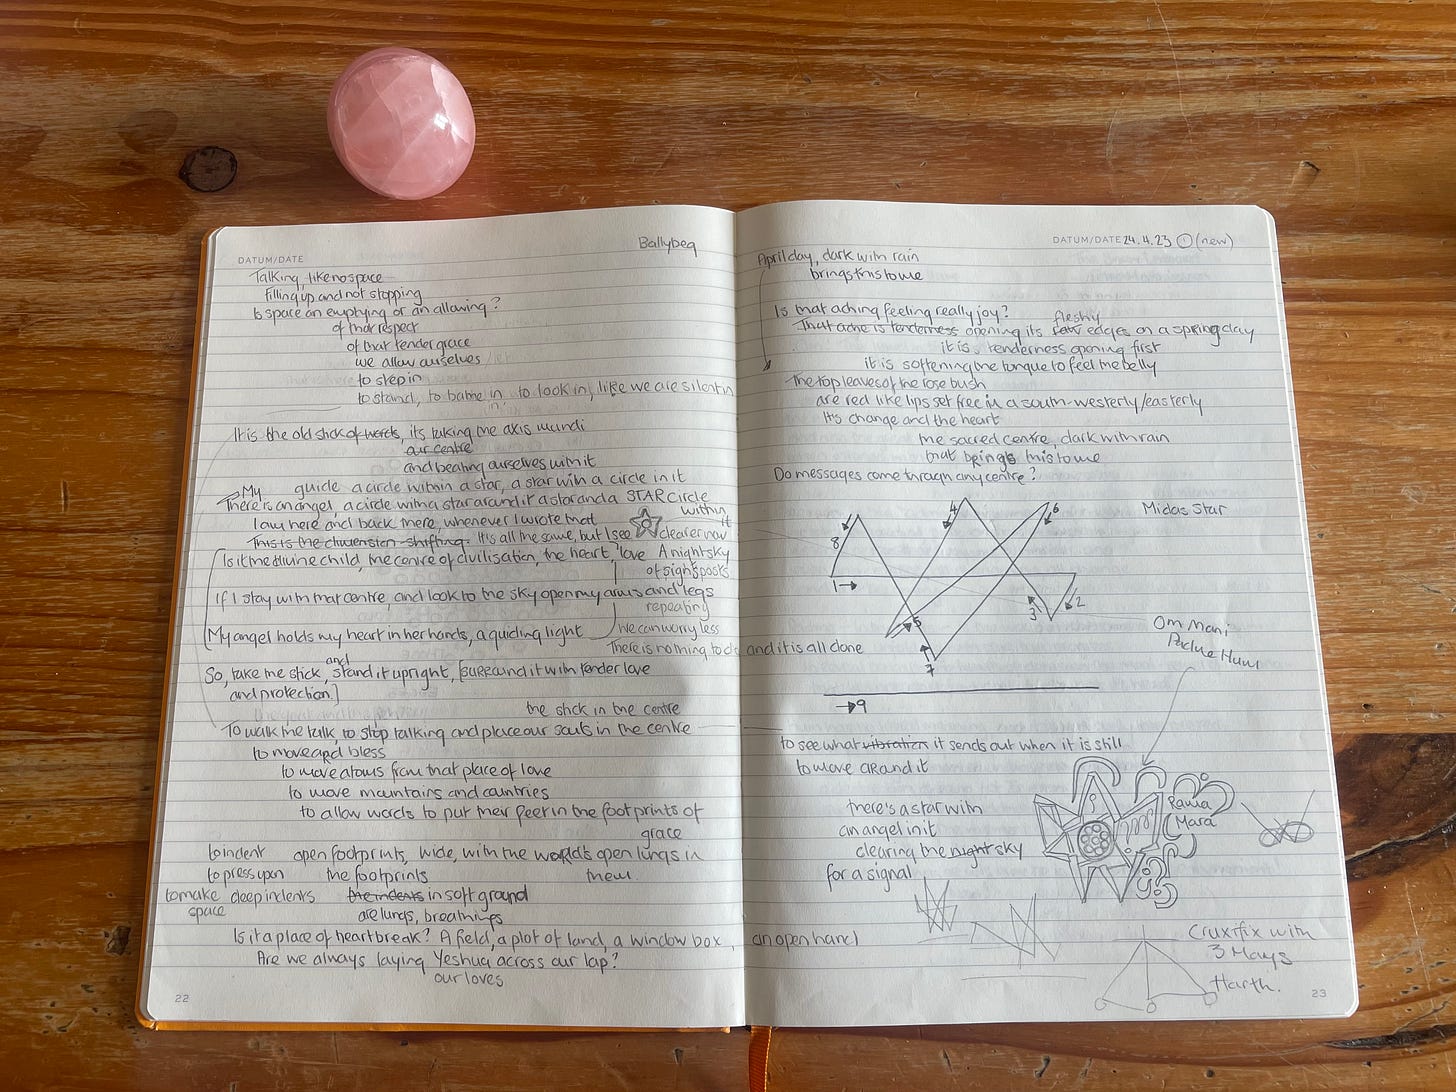 Ballybeg
DATUM/DATE
Talking, like no space
filling up and not stopping
Is space an emptying or an allowing?
of that respect
of that tender grace
we allow ourselves
to step in
to stand, to bathe in, to look in, like we are silent in
It is the old stick of words, its taking the axis mundi
our centre
and beating ourselves with it
My guide a circle within a star, a star with a circle in it
There is an angel, a circle with a star around it a star and a STAR circle
within it
I am here and back there, whenever I wrote that
This is the dimension shifting. It's all the same, but I see clearer now
Is it the divine child, the centre of civilisation, the heart, love A night sky
of signposts
If I stay with that centre, and look to the sky open my arms and legs
repeating
My angel holds my heart in her hands, a guiding light
We can worry less
There is nothing to do and it is all done
So, take the stick, and stand it upright, [surround it with tender love
and protection.]
the stick in the centre
To walk the talk, to stop talking and place our souls in the centre
to move and bless
to move atoms from that place of love
to move mountains and countries
to allow words to put their feet in the footprints of
grace
to indent open footprints, wide, with the world's open lungs in
to press upon the footprints them.
to make deep indents the indents in soft ground
space
are lungs, breathings
Is it a place of heartbreak? A field, a plot of land, a window box, an open hand
Are we always laying Yeshua across our lap?
our loves
22
DATUM/DATE 24.4.23 (new)
April day, dark with rain
brings this to me
Is that aching feeling really joy?
fleshy
That ache is tenderness opening its few edges on a spring day
it is, tenderness opening first
it is softening the tongue to feel the belly
The top leaves of the rose bush
are red like lips set free in a south-westerly/easterly
It's change and the heart
the sacred centre, dark with rain
that brings this to me
Do messages come through any centre?
Midas Star
4
6
8
1
2
3
5
7
9
Om Mani
Padme Hum
to see what vibration it sends out when it is still
to move around it
there's a star with
an angel in it
clearing the night sky
for a signal
Rama
Mara
Cruxifix with
3 Marys
Harth.
23